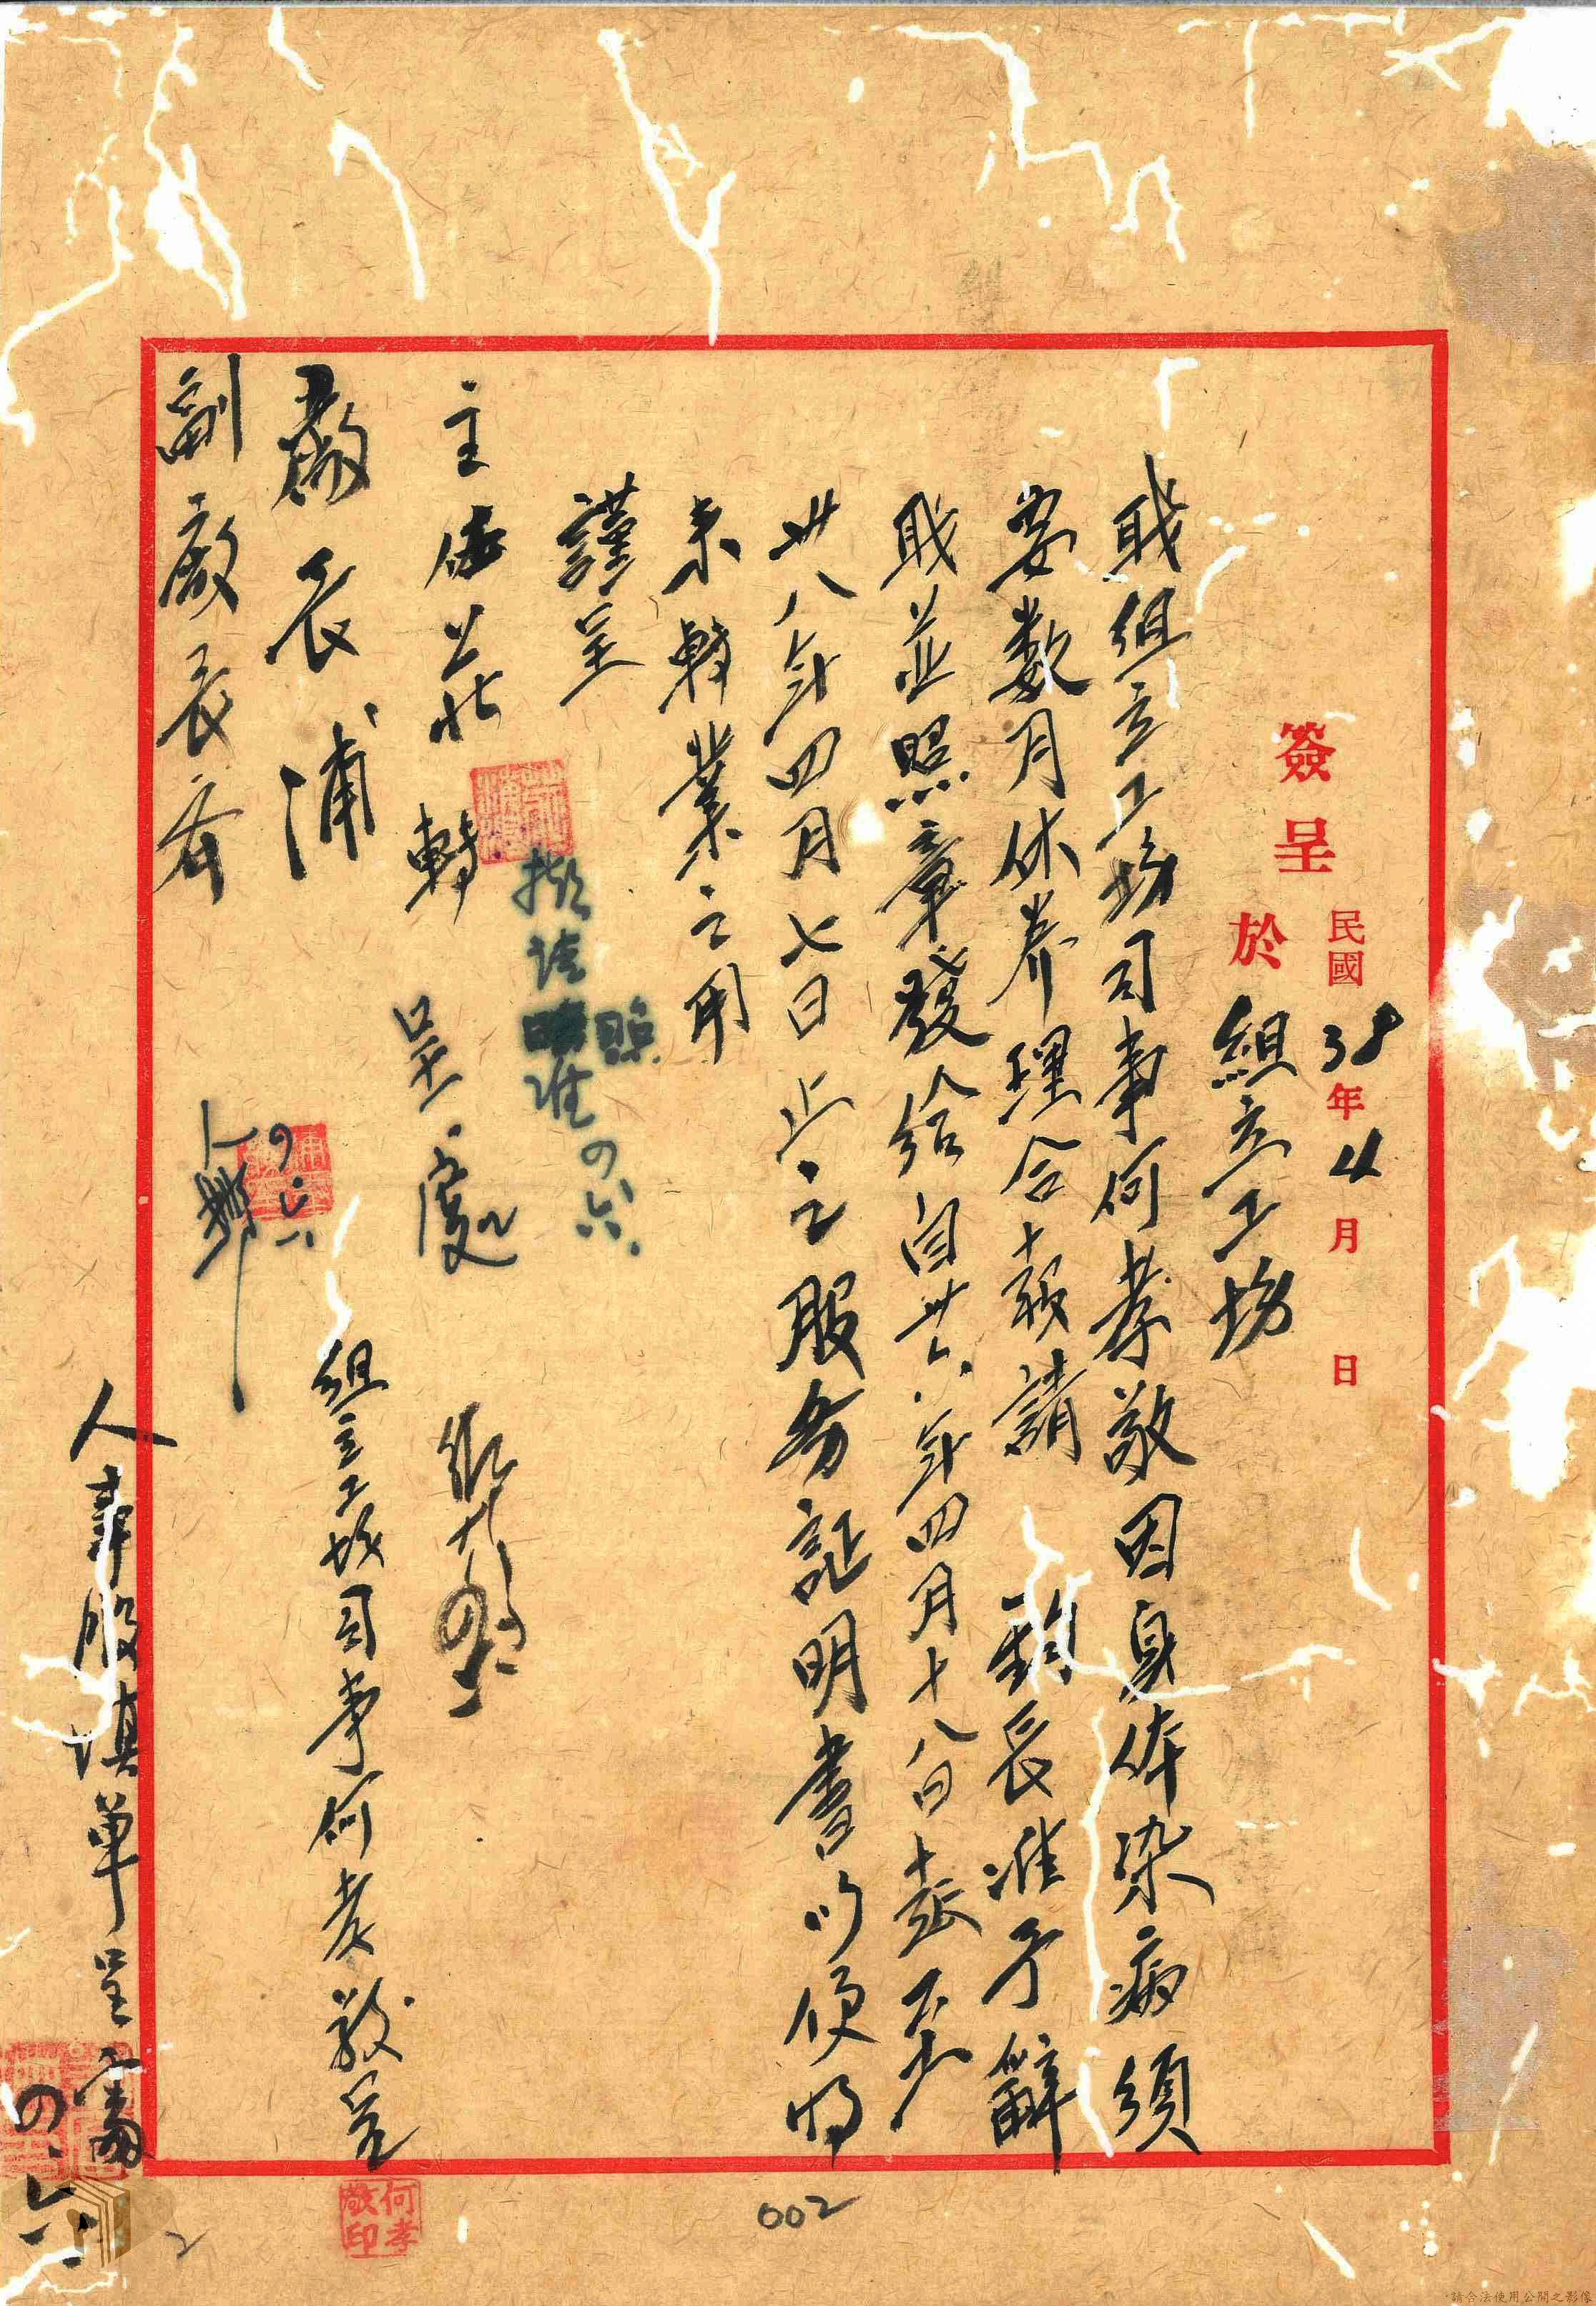 簽呈 民國38年4月 日
於 組立工坊
職組立工坊司事何孝敬因身体染病須
要數月休养理合簽請 鈞長准予辭
職並照章發給自卅六年四月十八日起至
卅八年四月七日止之服务証明書以便將
來轉業之用
謹呈
主任 轉
呈 處
廠長浦
副廠長齐
組立工坊司事何孝敬呈
何孝敬印
擬請照准 四.六.
四.六
人事股填單呈 四.六
002
2
請合法使用公開之影像